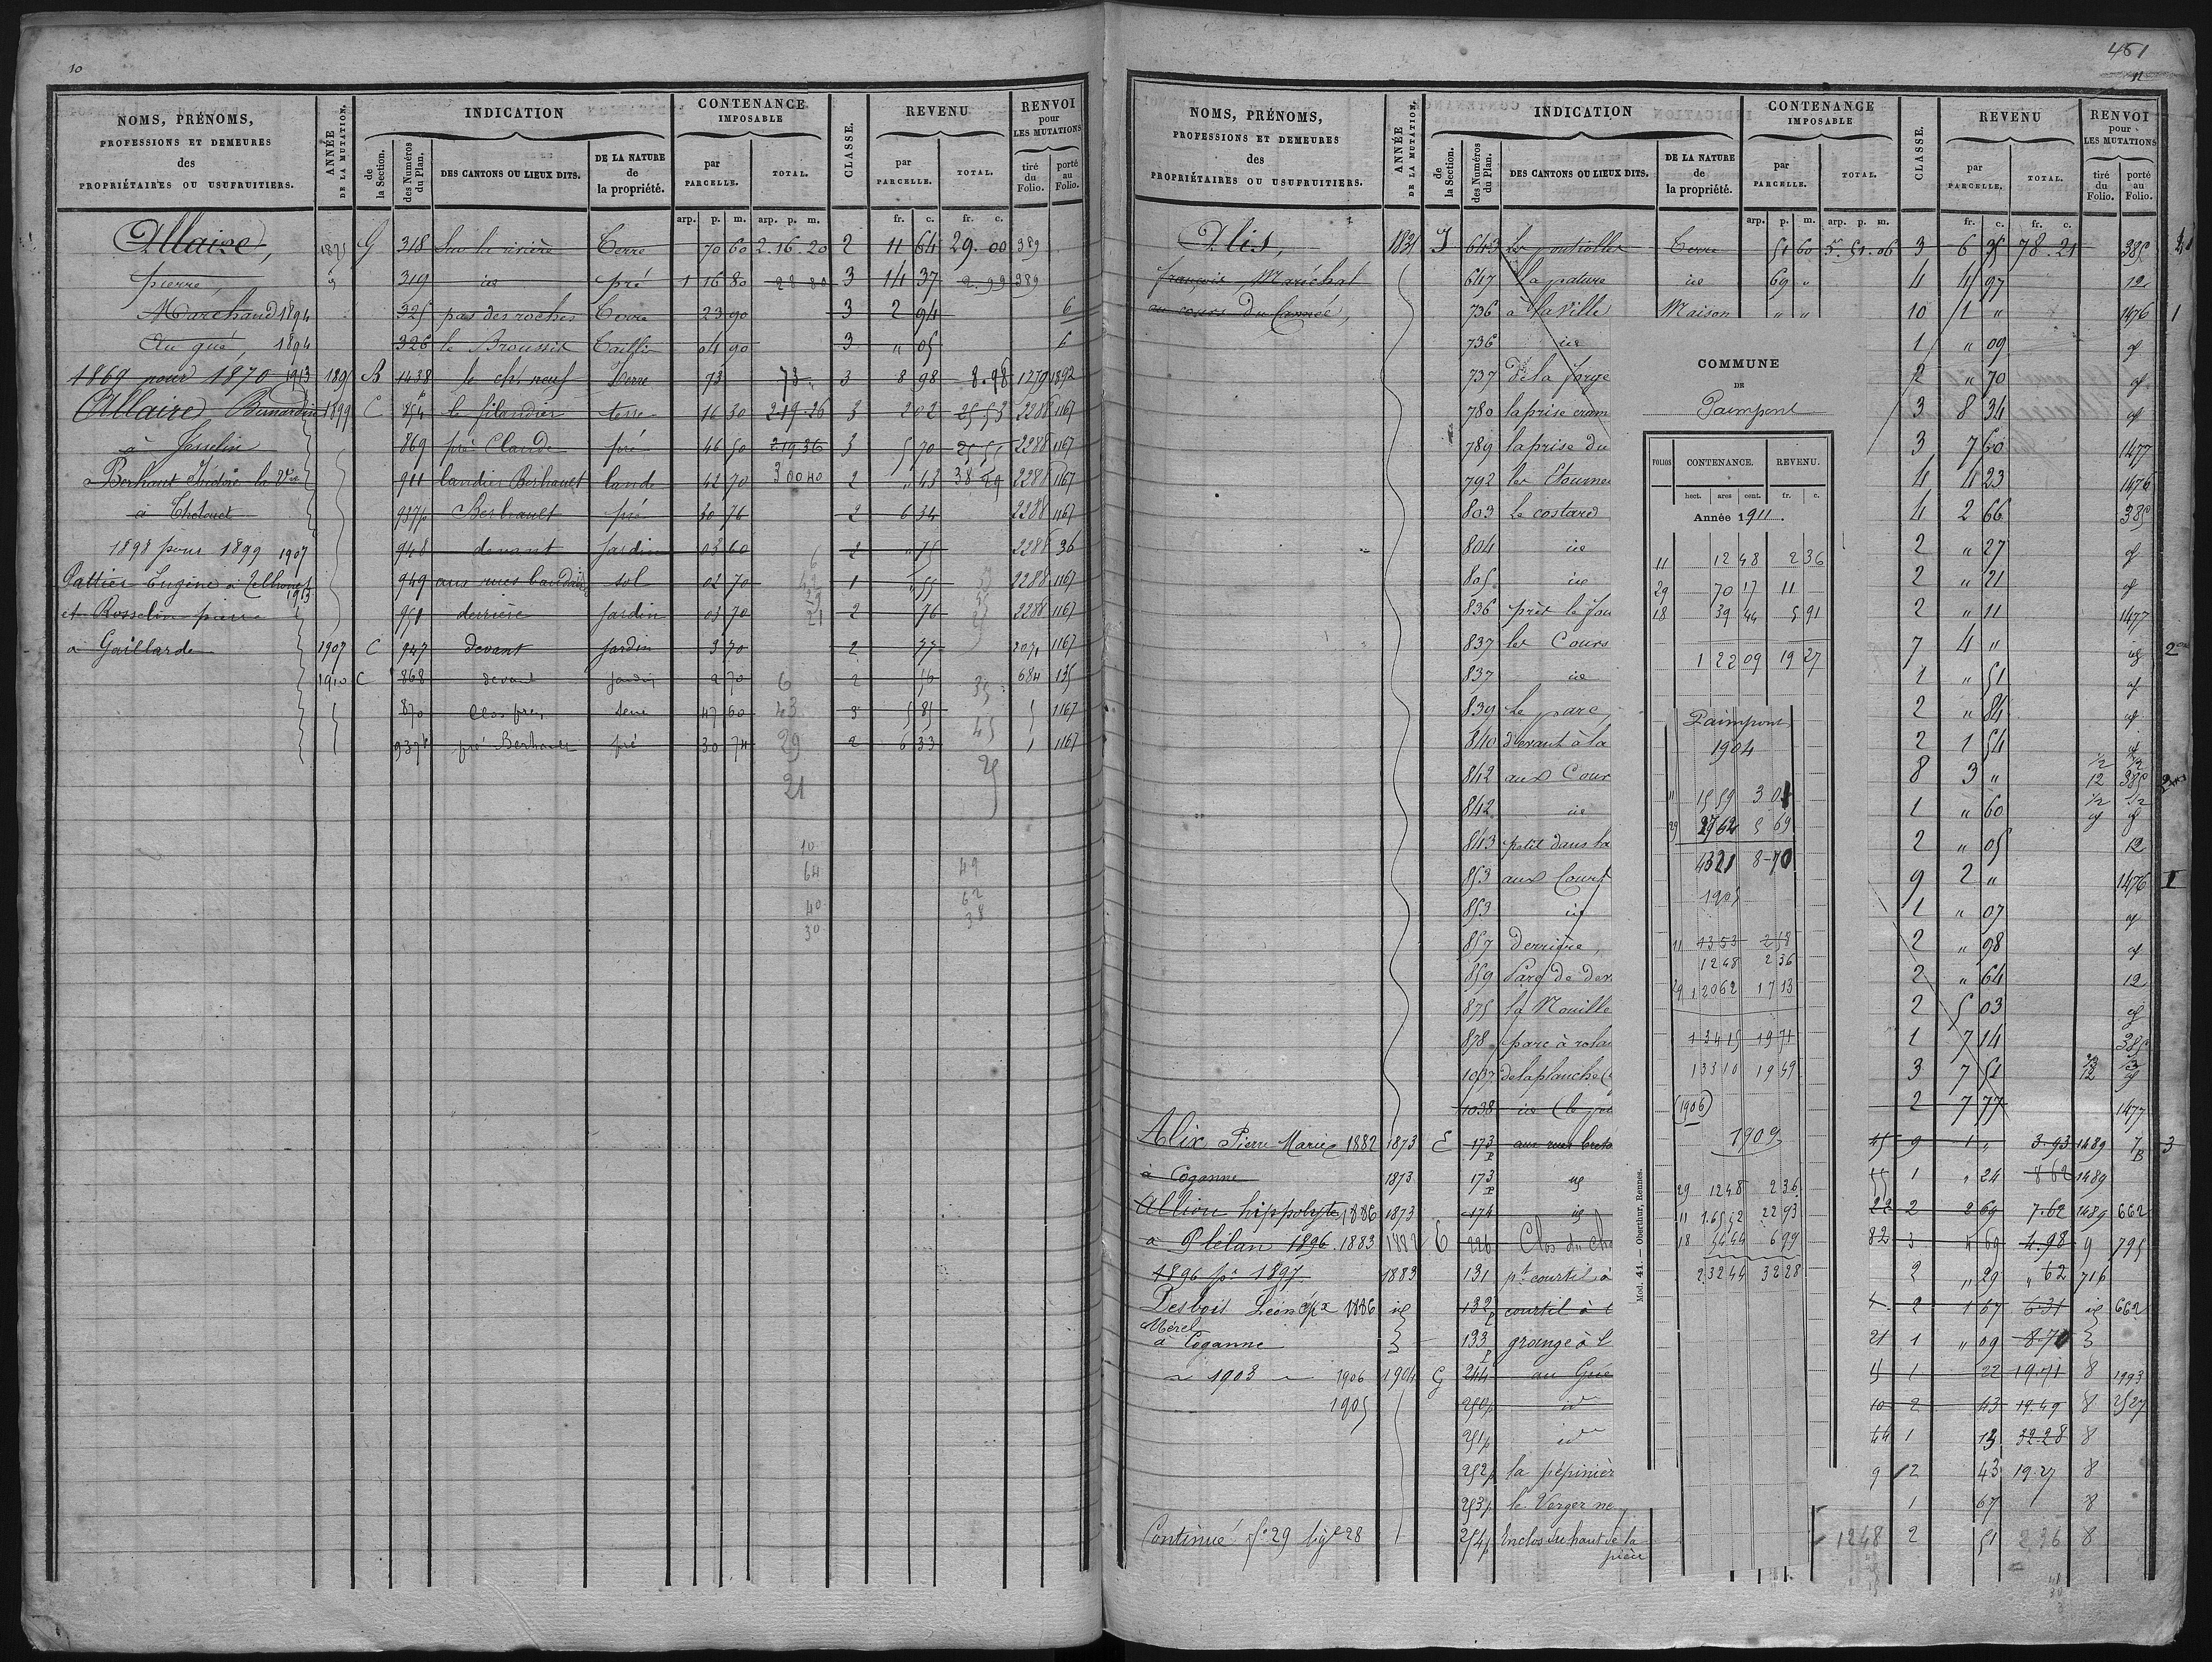 10
NOMS, PRÉNOMS,
PROFESSIONS ET DEMEURES
des
PROPRIÉTAIRES OU USUFRUITIERS.
ANNÉE
DE LA MUTATION.
INDICATION
de
la Section.
des Numéros
du Plan.
DES CANTONS OU LIEUX DITS.
DE LA NATURE
de
la propriété.
CONTENANCE
IMPOSABLE
par
PARCELLE.
TOTAL.
CLASSE.
REVENU
par
PARCELLE.
TOTAL.
RENVOI
pour
LES MUTATIONS
tiré
du
Folio.
porté
au
Folio.
arp. p. m. arp. p. m. fr. c. fr. c.
Allaire, G 318 Sur la rivière Terre 70 60 2.16.20 2 11 64 29.00 389
pierre, 319 id pré 1 16 80 28 80 3 14 37 2.99 389
Marchand 1894 325 pas des roches Terre 23 90 3 2 94 6
Au gué, 1894 326 le Broussil 04 90 3 " 05 6
1869 pour 1870 1913 B 1438 le ch. neuf Terre 73 73 3 8 98 8.98 1279 1892
Allaire Bernardin 1899 C 854 le filandier terre 16 30 2.19.26 3 2 02 25 53 2288 1167
à Josselin 869 pré Claude pré 46 50 2 19 36 3 5 70 2288 1167
Berhaut Isidore la Vve 911 landier Berhault lande 42 70 3 00 40 2 " 43 38 29 2288 1167
à Thelouet 937p Berhault pré 30 76 2 6 34 2288 1167
1898 pour 1899 1907 948 devant Jardin 03 60 2 " 75 2288 36
Pattier Eugène à Telhouet 949 aux rues baudais sol 02 70 1 " 55 2288 1167
1913
et Rosselin pierre 951 derrière Jardin 03 70 2 76 2288 1167
à Gaillarde 1907 C 947 devant Jardin 3 70 2 77 2071 1167
1910 C 868 devant Jardin 2 70 2 56 684 135
870 Clos pré Terre 47 60 3 5 85 1167
937p pré Berhault pré 30 74 2 6 33 1167
6
43
29
21
35
45
25
10
64
40
30
49
62
38
461
11
NOMS, PRÉNOMS,
PROFESSIONS ET DEMEURES
des
PROPRIÉTAIRES OU USUFRUITIERS.
ANNÉE
DE LA MUTATION.
INDICATION
de
la Section.
des Numéros
du Plan.
DES CANTONS OU LIEUX DITS.
DE LA NATURE
de
la propriété.
CONTENANCE
IMPOSABLE
par
PARCELLE.
TOTAL.
CLASSE.
REVENU
par
PARCELLE.
TOTAL.
RENVOI
pour
LES MUTATIONS
tiré
du
Folio.
porté
au
Folio.
arp. p. m. arp. p. m. fr. c. fr. c.
Alis, 1831 J 643 Terre 51 60 5.51.06 3 6 35 78.21 385
françois, Maréchal 647 la pature id 69 " 4 4 97 12
au cours du Canée, 736 à la Ville Maison " " 10 1 " 1476 1
736 id 1 " 09 id
737 de la forge 2 " 70 id
780 la prise 3 8 34 id
789 la prise du 3 7 60 1477
792 4 4 23 1476
803 Le costard 4 2 66 385
804 id 2 " 27 id
805 id 2 " 21 id
836 près le fou 2 " 11 1477
837 les Cours 7 4 " id
837 id 1 " 51 id
839 Le parc, 2 " 84 id
840 devant à la 2 1 54 id
842 aux Cour 8 3 " 12 385
842 id 1 " 60 id
843 petit dans la 2 " 05 12
853 aux Court 9 2 " 1476 1
853 id 1 " 07 id
857 derrière, 2 " 98 id
859 Parc de der 2 " 64 12
875 la Nouille 2 5 03 id
878 parc à rola 1 7 14 385
1037 de la planche 3 7 51 12 id
1038 id (le pré 2 7 77 1477
Alix Pierre Marie 1882 1873 E 173p aux rues 9 1 " 3.93 1489 7 3
à Coganne 1873 173p id 1 " 24 8 62 1489
Allion hippolyte, 1886 1873 174 id 22 2 2 69 7.62 1489 662
à Plélan 1896 1883 1882 E 226 Clos du 82 3 4 69 4.98 9 795
1896 pr 1897 1883 131 pt courtil à 2 " 29 " 62 716
Desbois Léon épx 1886 id 132p courtil à 2 1 67 6.31 id 662
Mérel
à Coganne 133p grange à l 21 1 " 09 8.70
1903 1906 1904 G 244 au Gué 1 22 19.71 8 1993
1905 250p id 10 2 43 19.49 8 2527
251p id 44 1 13 32.28 8
252p la pépinièr 9 2 43 19.27 8
253p le Verger ne 1 67 8
Continué fo 29 lig 28 254p Enclos du haut de la 1248 2 51 2 36 8
pièce
COMMUNE
DE
Paimpont
FOLIOS CONTENANCE. REVENU.
hect. ares cent. fr. c.
Année 1911.
11 12 48 2 36
29 70 17 11
18 39 44 5 91
1 22 09 19 27
Paimpont
1904
11 15 59 3 01
29 27 62 5 69
43 21 8 70
1905
11 13 53 2 58
12 48 2 36
29 1 20 62 17 13
1 34 15 19 71
1 33 10 19 49
(1906)
1909
29 12 48 2 36
11 1.65 52 22 93
18 54 44 6 99
2.32 44 32 28
Mod. 41. — Oberthur, Rennes.